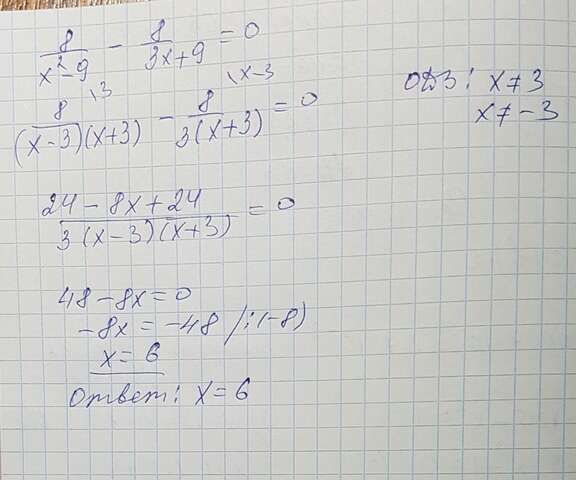 8/(x²-9) - 8/(3x+9) = 0
8\3/((x-3)(x+3)) - 8\x-3/(3(x+3)) = 0
ОДЗ: x≠3
x≠-3
(24-8x+24)/(3(x-3)(x+3)) = 0
48-8x=0
-8x=-48 /:(-8)
x=6
Ответ: x=6